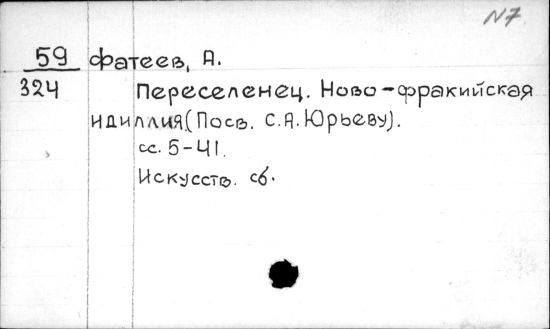 N7
59 Фатеев, А.
324 Переселенец. Ново-фракийская
идиллия (Посв. С.А.Юрьеву).
сс. 5-41.
Искусств. сб.